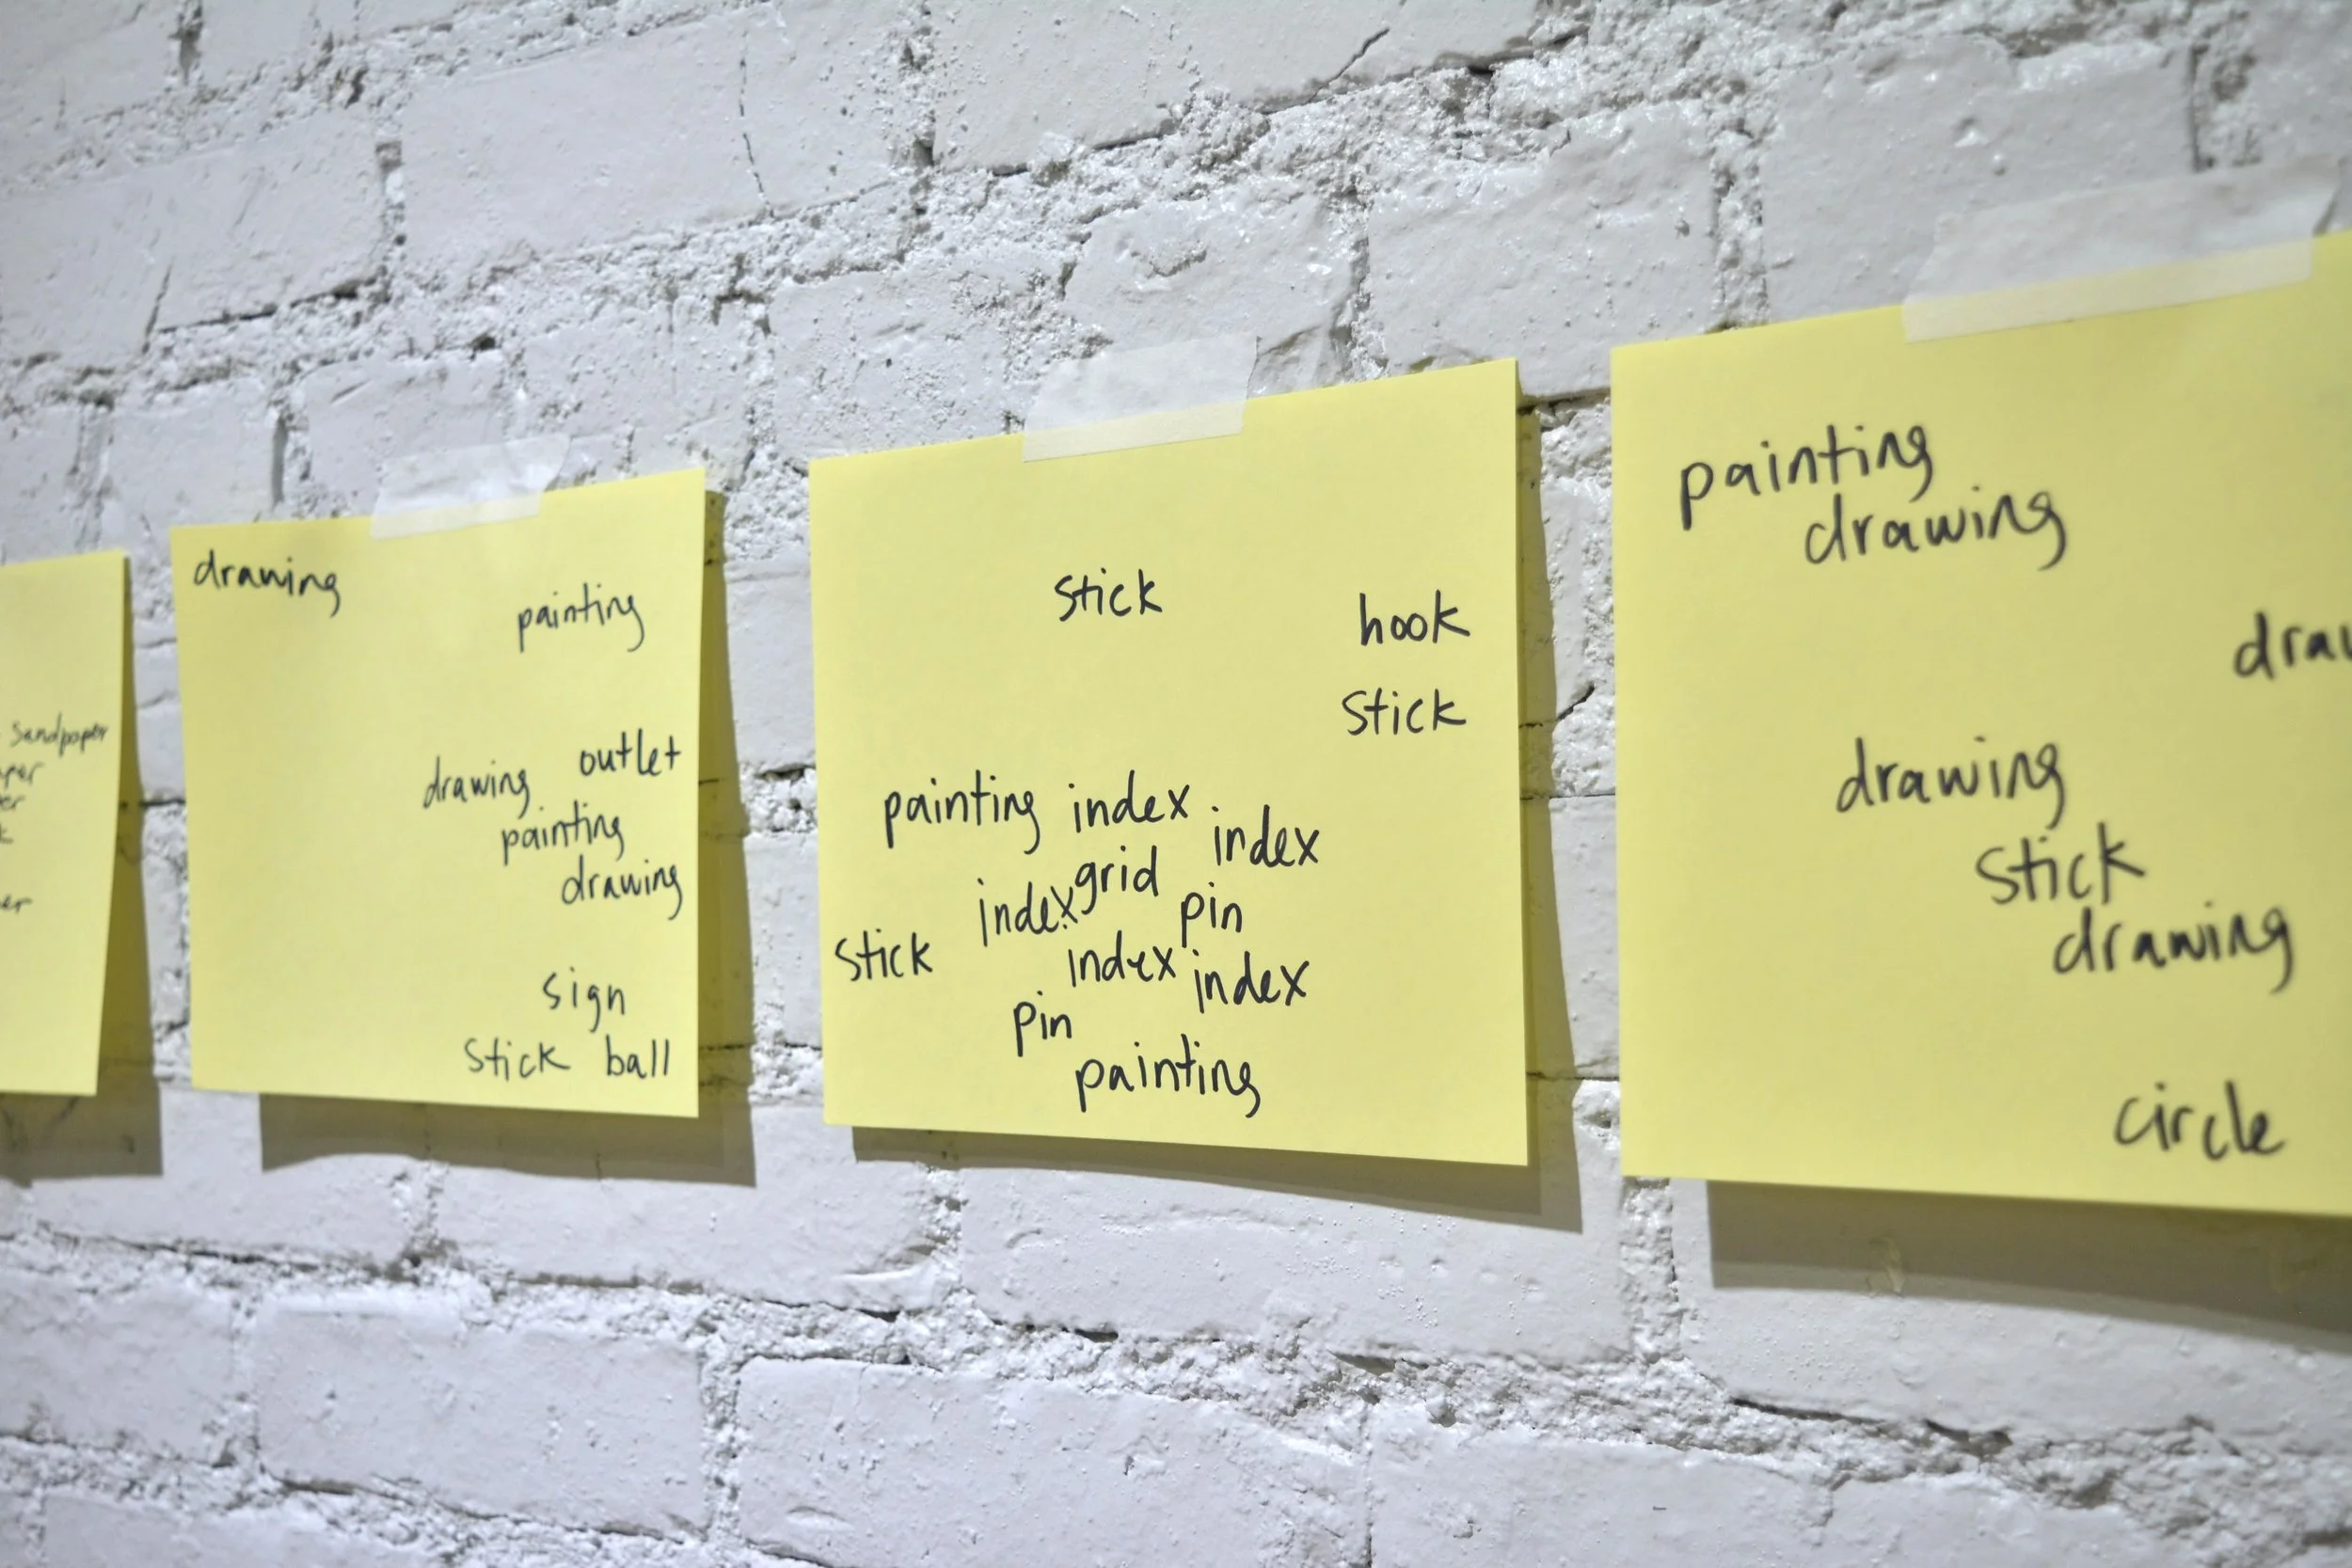 Sandpaper
drawing
painting
outlet
drawing
painting
drawing
sign
stick ball
stick
hook
stick
painting index
index
grid
index
pin
stick
index index
pin
painting
painting
drawing
drawing
stick
drawing
circle